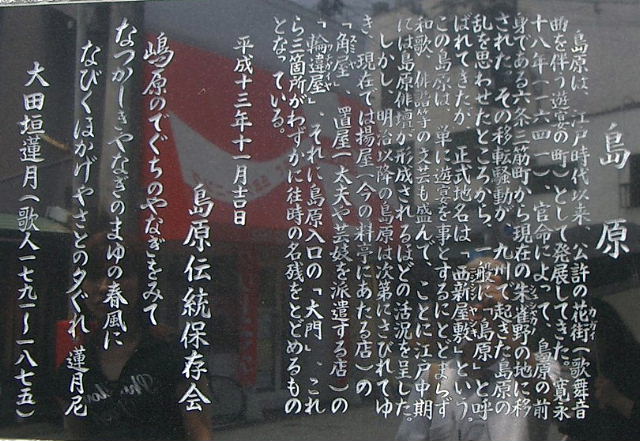 島原
島原は、江戸時代以来、公許の花街(歌舞音
曲を伴う遊宴の町)として発展してきた。寛永
十八年(一六四一)、官命によって、島原の前
身である六条三筋町から現在の朱雀野の地に移
された。その移転騒動が、九州で起きた島原の
乱を思わせたところから、一般に「島原」と呼
ばれてきたが、正式地名は、「西新屋敷」という。
この島原は、単に遊宴を事とするにとどまらず、
和歌、俳諧等の文芸も盛んで、ことに江戸中期
には島原俳壇が形成されるほどの活況を呈した。
しかし、明治以降の島原は次第にさびれてゆ
き、現在では揚屋(今の料亭にあたる店)の
「角屋」、置屋(太夫や芸妓を派遣する店)の
「輪違屋」、それに島原入口の「大門」、これ
ら三箇所がわずかに往時の名残をとどめるもの
となっている。
平成十三年十一月吉日
島原伝統保存会
嶋原のでぐちのやなぎをみて
なつかしきやなぎのまゆの春風に
なびくほかげやさとの夕ぐれ 蓮月尼
大田垣蓮月(歌人一七九一〜一八七五)